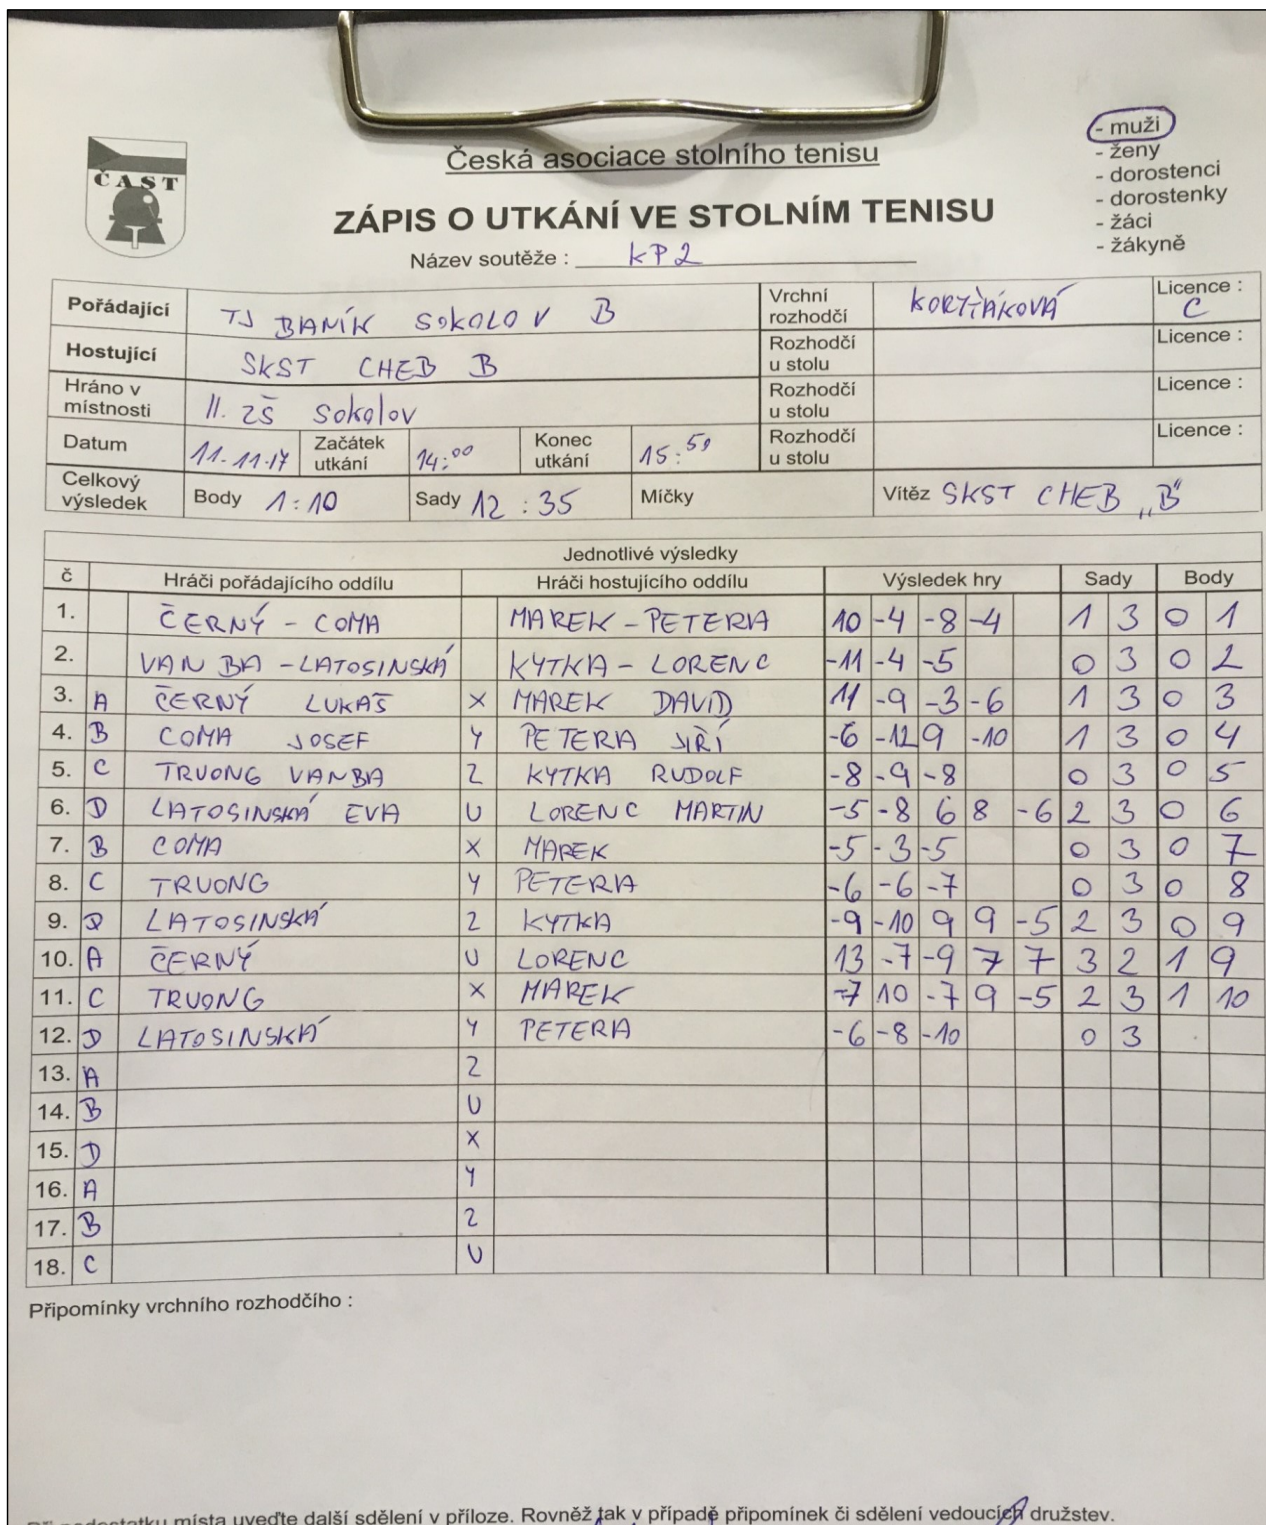 - muži
- ženy
- dorostenci
- dorostenky
- žáci
- žákyně
ČAST
Česká asociace stolního tenisu
ZÁPIS O UTKÁNÍ VE STOLNÍM TENISU
Název soutěže : KP2
Pořádající TJ BANÍK SOKOLOV B Vrchní rozhodčí KORYŤÁKOVÁ Licence : C
Hostující SKST CHEB B Rozhodčí u stolu Licence :
Hráno v místnosti II. ZŠ Sokolov Rozhodčí u stolu Licence :
Datum 11.11.17 Začátek utkání 14:00 Konec utkání 15:59 Rozhodčí u stolu Licence :
Celkový výsledek Body 1:10 Sady 12:35 Míčky Vítěz SKST CHEB „B"
Jednotlivé výsledky
č Hráči pořádajícího oddílu Hráči hostujícího oddílu Výsledek hry Sady Body
1. ČERNÝ - COMA MAREK - PETERA 10 -4 -8 -4 1 3 0 1
2. VAN BA - LATOSINSKÁ KYTKA - LORENC -11 -4 -5 0 3 0 2
3. A ČERNÝ LUKAŠ X MAREK DAVID 11 -9 -3 -6 1 3 0 3
4. B COMA JOSEF Y PETERA JIŘÍ -6 -12 9 -10 1 3 0 4
5. C TRUONG VAN BA Z KYTKA RUDOLF -8 -9 -8 0 3 0 5
6. D LATOSINSKÁ EVA U LORENC MARTIN -5 -8 6 8 -6 2 3 0 6
7. B COMA X MAREK -5 -3 -5 0 3 0 7
8. C TRUONG Y PETERA -6 -6 -7 0 3 0 8
9. D LATOSINSKÁ Z KYTKA -9 -10 9 9 -5 2 3 0 9
10. A ČERNÝ U LORENC 13 -7 -9 7 7 3 2 1 9
11. C TRUONG X MAREK -7 10 -7 9 -5 2 3 1 10
12. D LATOSINSKÁ Y PETERA -6 -8 -10 0 3
13. A Z
14. B U
15. D X
16. A Y
17. B Z
18. C U
Připomínky vrchního rozhodčího :
Při nedostatku místa uveďte další sdělení v příloze. Rovněž tak v případě připomínek či sdělení vedoucích družstev.